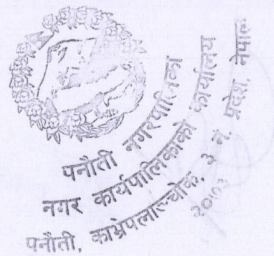 पनौती नगरपालिका
नगर कार्यपालिकाको कार्यालय
पनौती, काभ्रेपलाञ्चोक, ३ नं. प्रदेश, नेपाल
२०७३